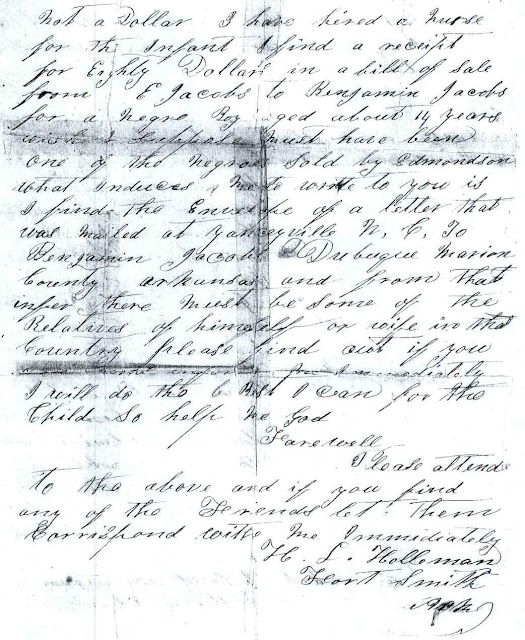 Not a Dollar I have hired a Nurse
for the Infant I find a receipt
for Eighty Dollars in a bill of sale
from E Jacobs to Benjamin Jacobs
for a Negro Boy aged about 14 years
which I suppose Must have been
one of the Negroes Sold by Edmondson
what Induces Me to write to you is
I find the Envelope of a letter that
was Mailed at Yanceyville N, C, To
Benjamin Jacobs Dubuque Marion
County Arkansas and from that
infer there Must be some of the
Relatives of himself or wife in the
Country please find out if you
and write Immediately
I will do the best I can for the
Child So help Me God
Farewell
Please attend
to the above and if you find
any of the Frends let them
Corrispond with Me Immidiately
H. L. Holleman
Fort Smith
Ark